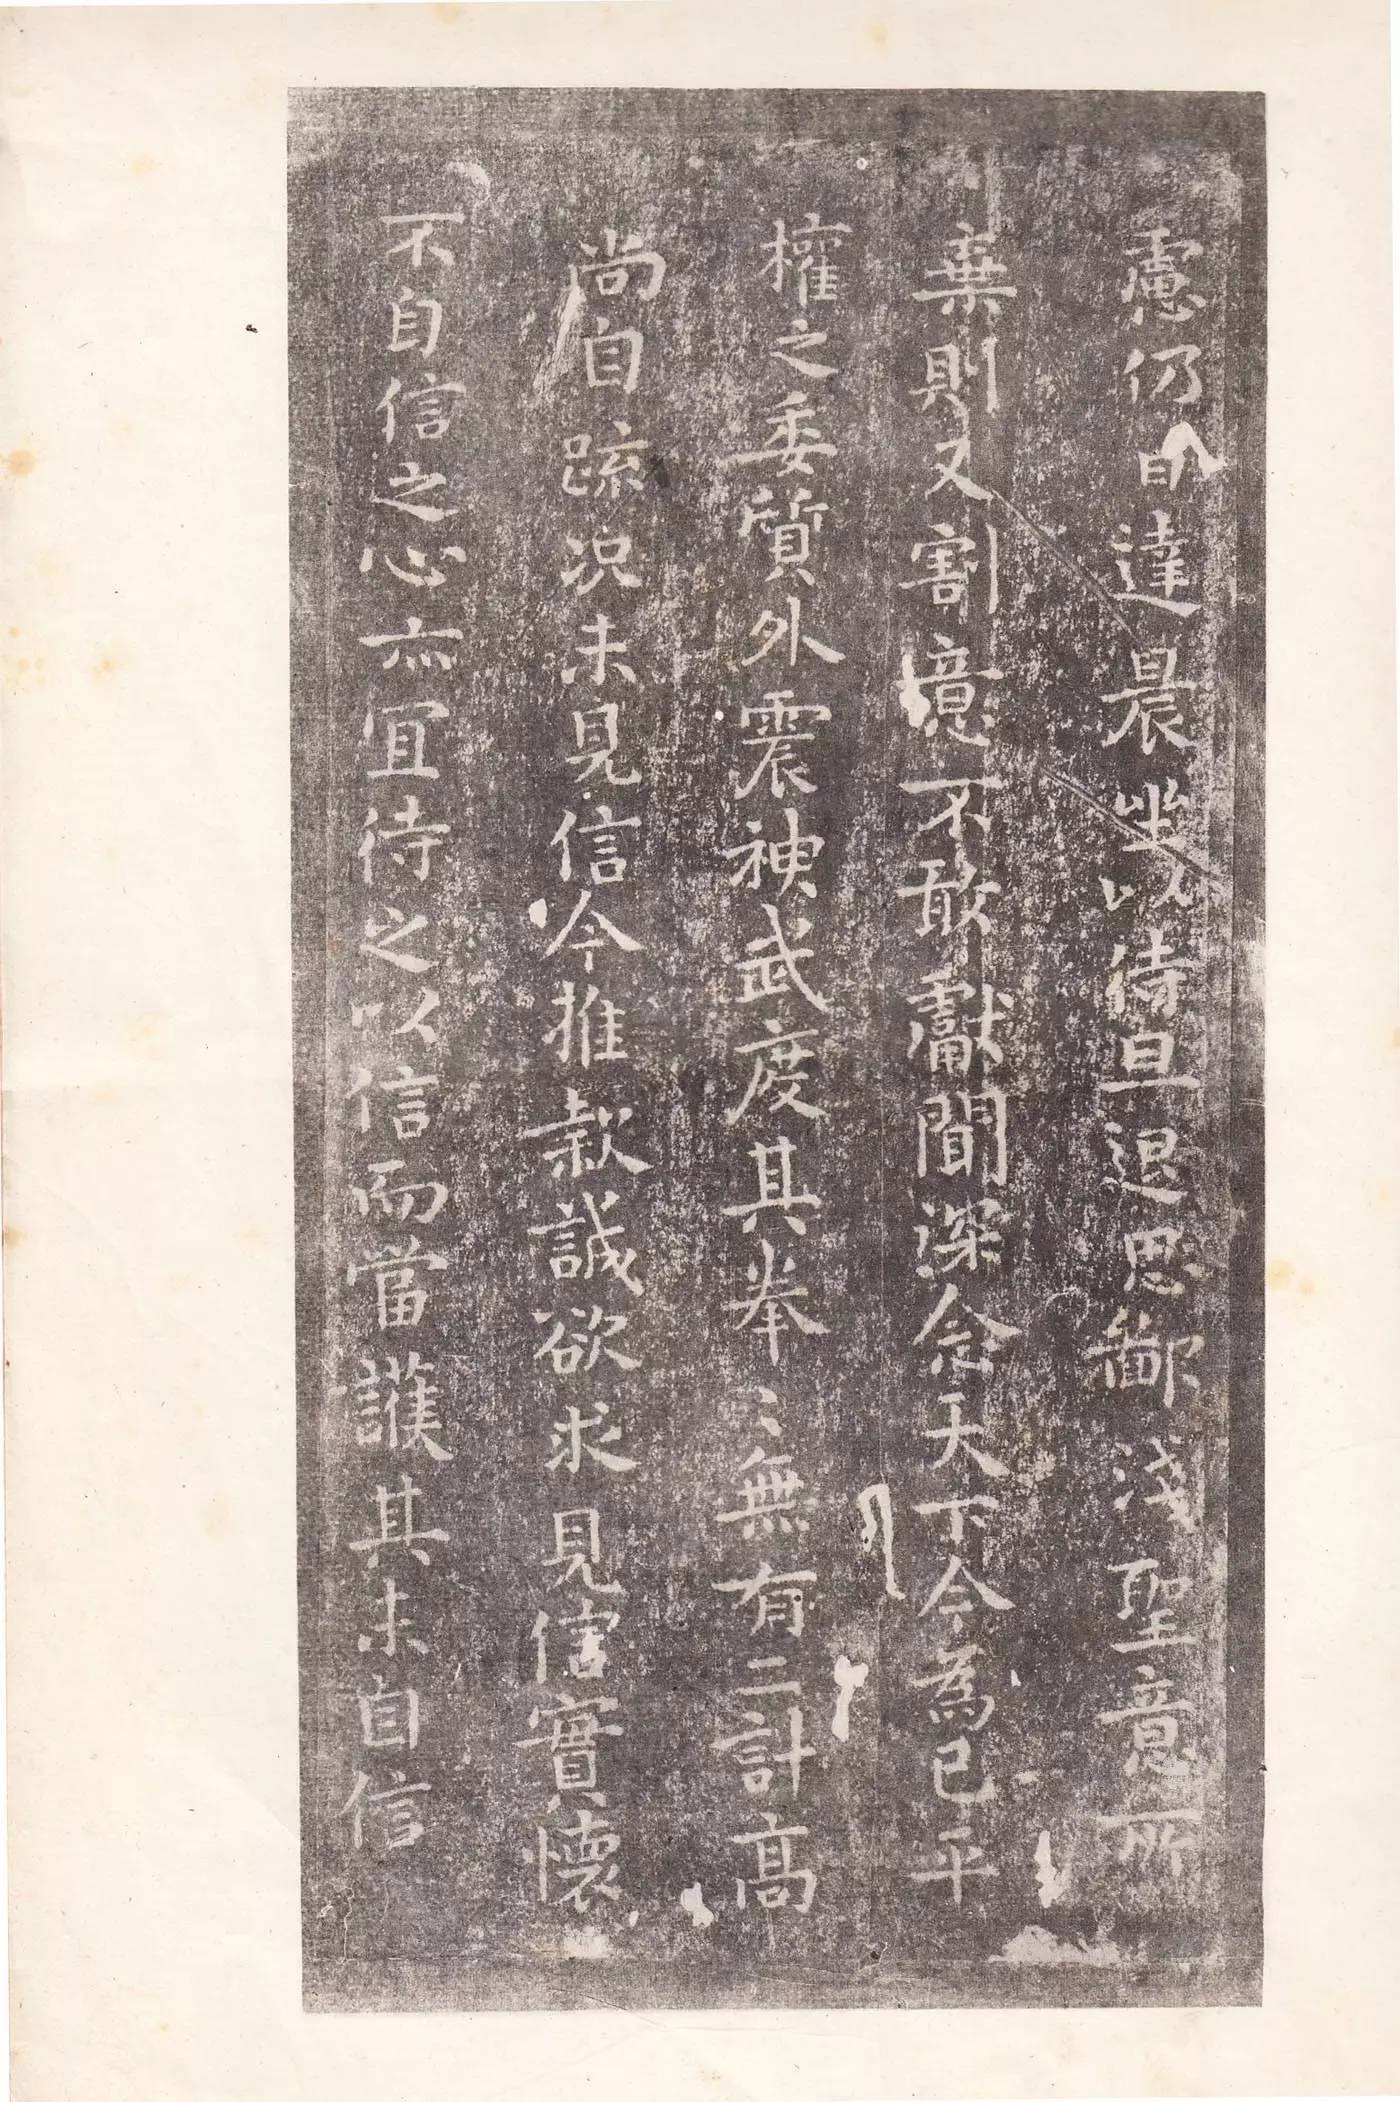 慮仍日達晨坐以待旦退思鄙淺聖意所
棄則又割意不敢獻聞深念天下今為已平
權之委質外震神武度其拳〻無有二計高
尚自疏況未見信今推款誠欲求見信實懷
不自信之心亦宜待之以信而當護其未自信